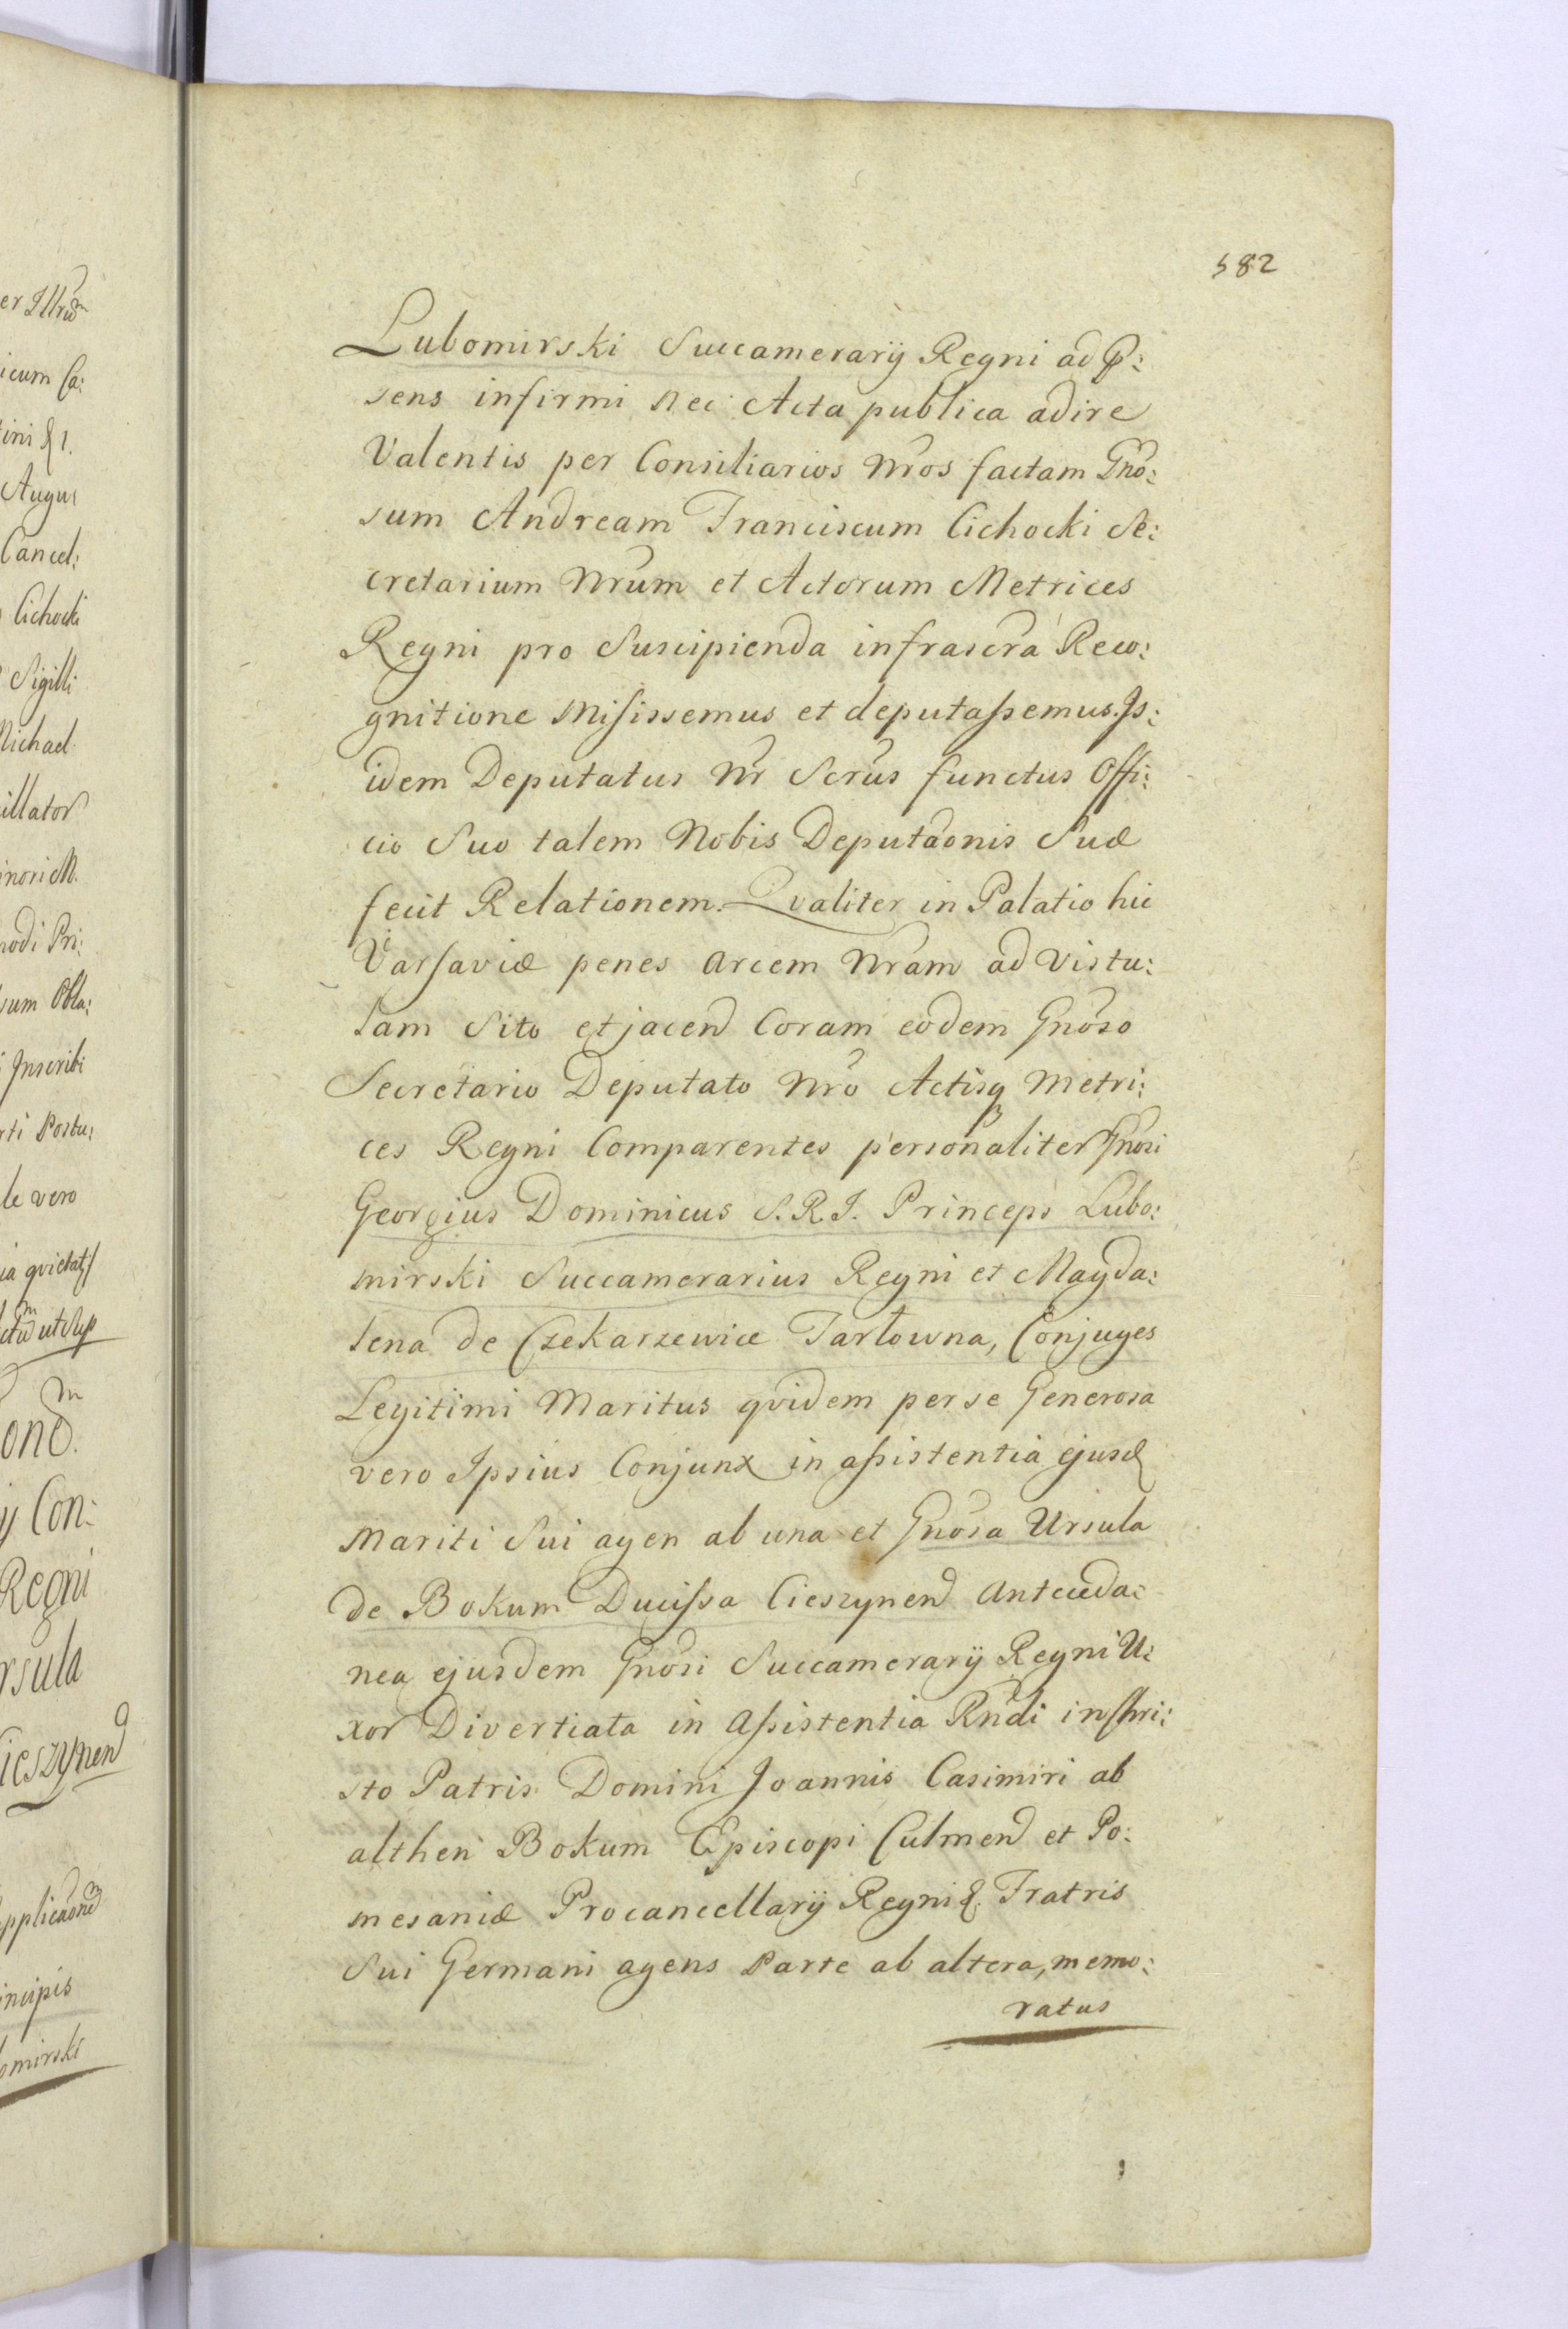 582
Lubomirski Succamerarij Regni ad P:
sens infirmi nec Acta publica adire
Valentis per Consiliarios Nros factam Gno:
sum Andream Franciscum Cichocki Se:
cretarium Nrum et Actorum Metrices
Regni pro Suscipienda infrascra Reco:
gnitione Misissemus et deputassemus. Is:
idem Deputatus Nr Scrus functus Offi:
cio Suo talem Nobis Deputaonis Suæ
fecit Relationem. Qvaliter in Palatio hic
Varsaviæ penes Arcem Nram ad Vistu:
lam Sito et jacen Coram eodem Gnoso
Secretario Deputato Nro Actisq Metri:
ces Regni Comparentes personaliter Gnosi
Georgius Dominicus S.R.I. Princeps Lubo:
mirski Succamerarius Regni et Magda:
lena de Czekarzewice Tarłowna, Conjuges
Legitimi Maritus qvidem per se Generosa
vero Ipsius Conjunx in assistentia ejusd
Mariti Sui agen ab una et Gnosa Ursula
de Bokum Ducissa Cieszynen Anteceda:
nea ejusdem Gnosi Succamerarij Regni U:
xor Divertiata in Assistentia Rndi in Chri:
sto Patris Domini Joannis Casimiri ab
althen Bokum Episcopi Culmen et Po:
mesaniæ Procancellarij Regni &. Fratris
Sui Germani agens Parte ab altera, memo:
ratus
er Illrum
icum Ca:
tini & 1.
Augu
Cancel:
Cichocki
Sigilli
Michael
illator
inori M.
modi Pri:
sum Obla:
Inscribi
rti Postu:
le vero
ia qvietat
ctum ut Sup
ond.
ij Con:
Regni
rsula
Cieszynen
pplicaonem
incipis
omirski